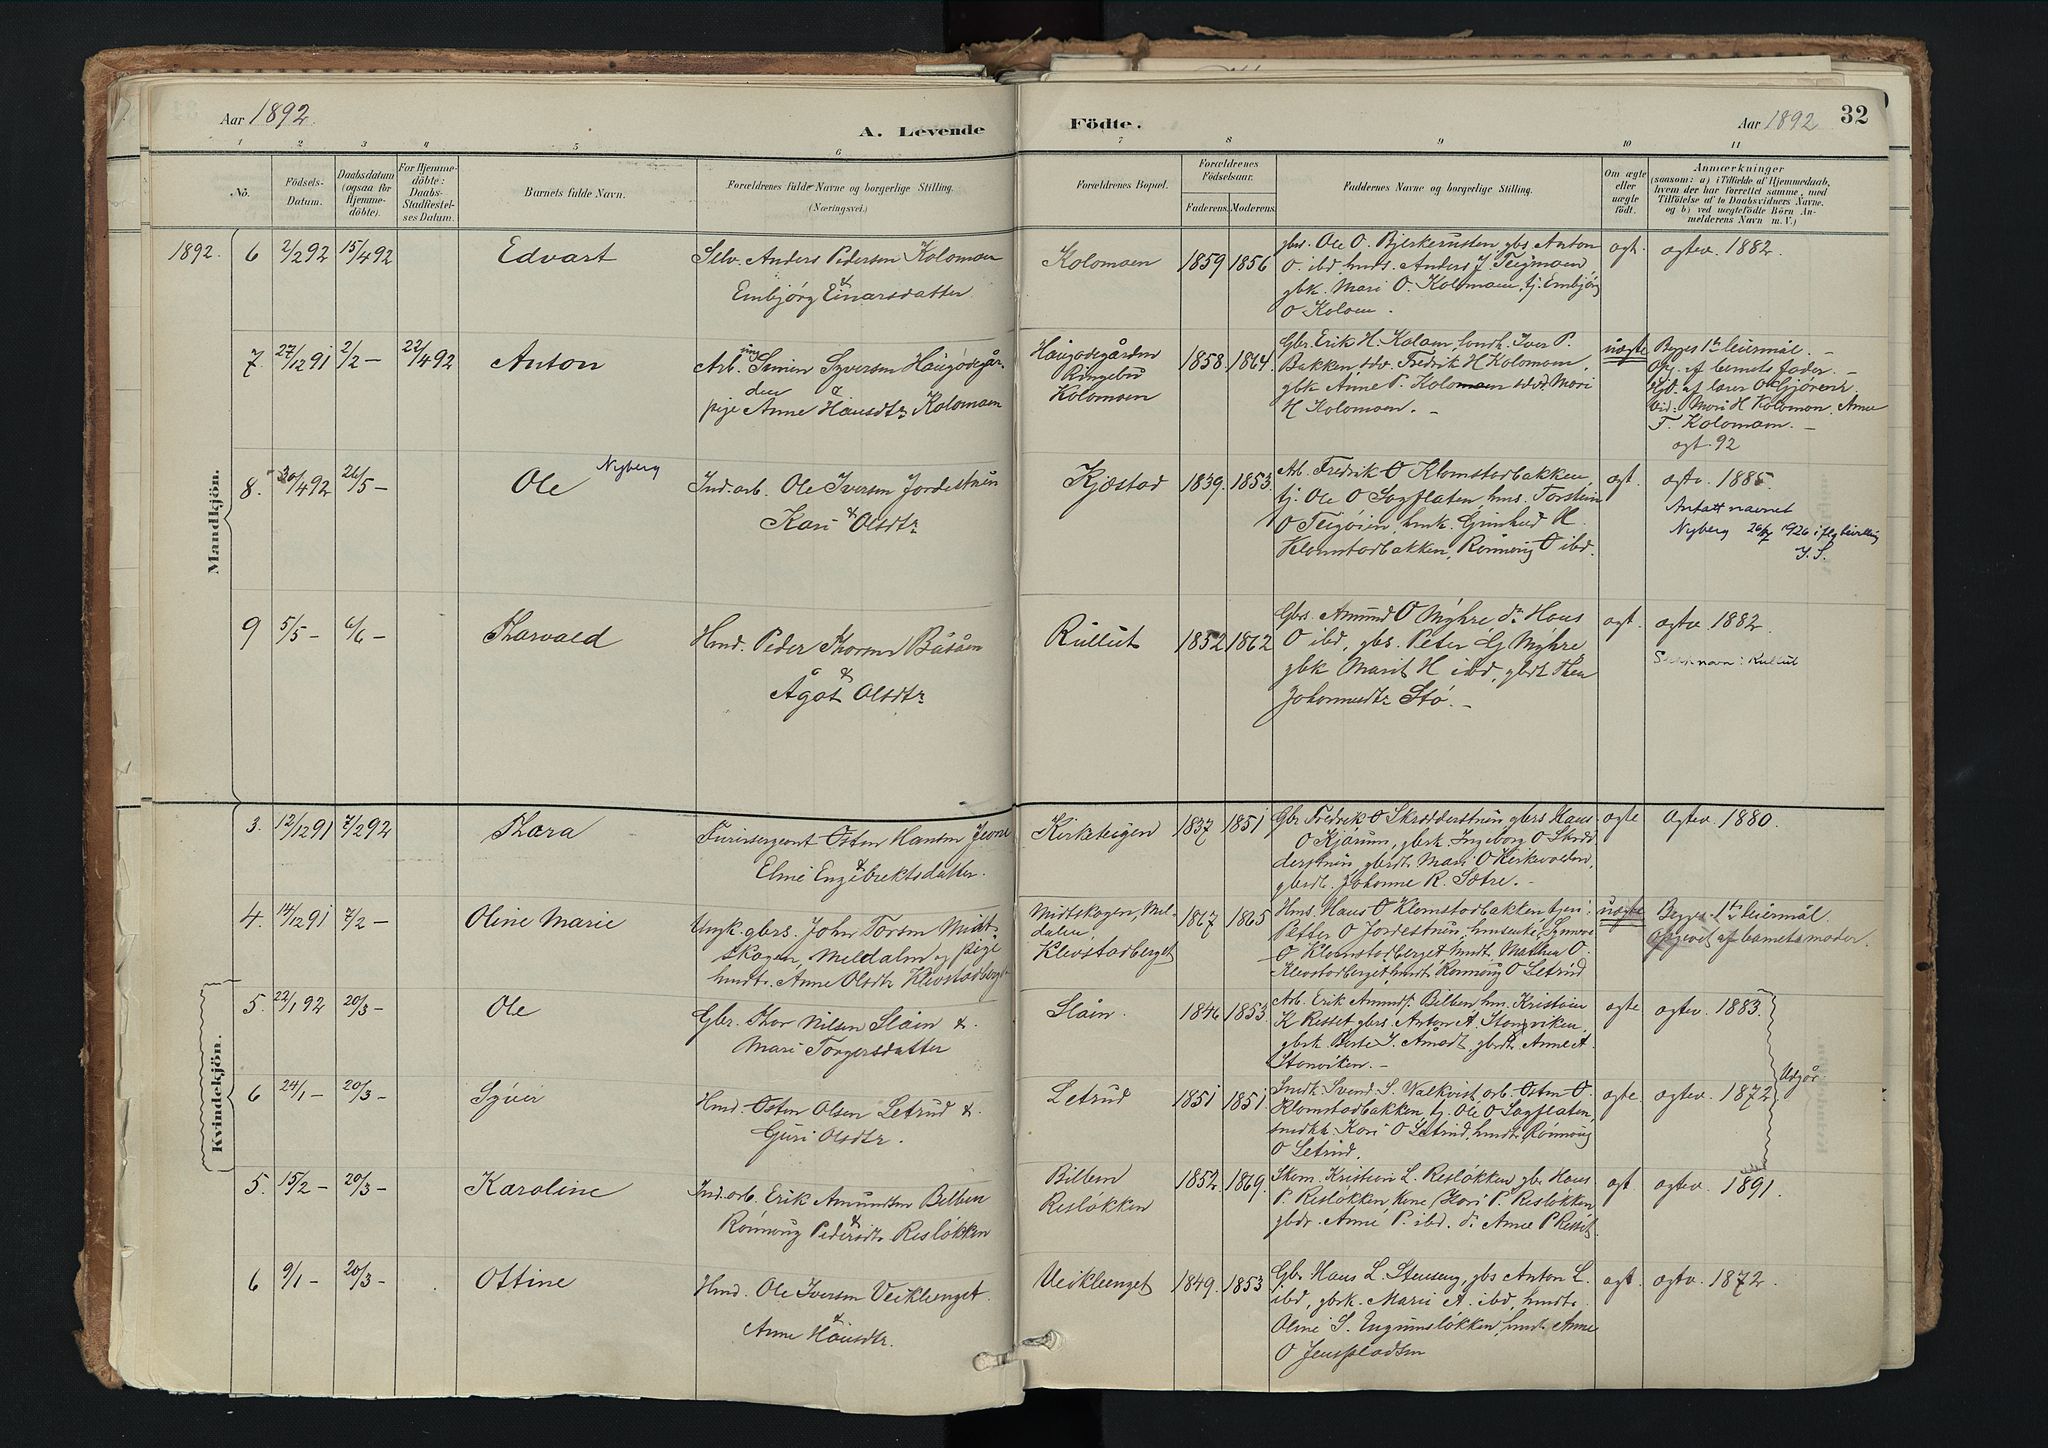 Aar 1892.
A. Levende
Födte.
Aar 1892
32
1 2 3 4 5 6 7 8 9 10 11
Nô.
Födsels-
Datum.
Daabsdatum
(ogsaa for
Hjemme-
döbte).
For Hjemme-
döbte:
Daabs-
Stadfæstel-
ses Datum.
Barnets fulde Navn.
Forældrenes fulde Navne og borgerlige Stilling.
(Næringsvei.)
Forældrenes Bopæl.
Forældrenes
Födselsaar.
Faderens. Moderens.
Faddernes Navne og borgerlige Stilling.
Om ægte
eller
uægte
født.
Anmærkninger
(saasom: a) i Tilfælde af Hjemmedaab,
hvem der har forrettet samme, med
Tilföielse af to Daabsvidners Navne.
og b) ved uægtefödte Börn An-
melderens Navn m. V.)
Mandkjön.
1892. 6 2/2 92 15/4 92 Edvart
Selv. Anders Pedersen Kolomoen
&
Embjörg Einarsdatter
Kolomoen 1859 1856
gbr. Ole O. Bjerkerusten, gbs Anton
O. ibd, hmds. Anders J Teigmoen,
gbk. Mari O. Kolomoen, tj. Embjörg
O Kolom.
ægt. ægtev. 1882.
7. 27/12 91 2/2 – 22/4 92 Anton
Arb. ung Simen Syversen Haugödegår-
den &
pige Anne Hansdtr Kolomoen
Haugödegården
Ringebu
Kolomoen
1858 1864
Gbr. Erik H. Kolom, landh. Iver P.
Bakken, sdv. Fredrik H Kolomoen,
gbk Anne P. Kolomoen sdvd. Mari
H Kolomoen. –
uægte
Begges 1te leiermål. –
Opg. af barnets fader. –
Hjd. af lærer O Gjörens.
Vid. Mari H Kolomoen. Anne
F. Kolomoen. –
ægt. 92
8. 30/4 92 26/5 – Ole Nyberg
Ind.arb. Ole Iversen Jordestuen
&
Kari Olsdtr
Kjæstad 1839. 1853.
Arb. Fredrik O Klomstadbakken,
tj. Ole O Sagflaten, hms. Torstein
O Teigöien, hmk. Gunhild H.
Klomstadbakken, Rönnoug O ibd.
ægt. ægtv. 1885.
Antatt navnet
Nyberg 26/7 1926 iflg bevilling
J. S.
9 5/5 – 6/6 – Tharvald
Hmd. Peder Thorsen Båsåen
&
Ågot Olsdtr
Rullut 1852 1862
Gbr. Amund O Myhre do Hans
O ibd, gbs. Peter G Myhre
gbk Marit H ibd, gbdt Thea
Johannesdtr Stö. –
ægt. ægtev. 1882.
Slektsnavn: Rullut
Kvindekjön.
3. 12/12 91 7/2 92 Thora
Furersergeant Osten Hansen Jevne
&
Eline Engebrektsdatter.
Kirketeigen 1837 1851
Gbr Fredrik O Skrædderstuen gbrs Hans
O Kjörum, gbrk. Ingeborg O Skræd
derstuen, gbrdt. Mari O Kirkevolden,
gbrdt. Johanne R. Sætre. –
ægte ægtev. 1880.
4. 14/12 91 7/2 – Oline Marie
Ungk. gbrs. John Torsen Midt
skogen, Meldalen og pige
hmdtr. Anne Olsdtr Klevstadberget
Midtskogen, Mel-
dalen.
Klevstadberget
1867 1865
Hms. Hans O Klomstadbakken, tjen:
Petter O Jordestuen, hmsenke, Synnöve
O Klomstadberget hmdt. Mathea O.
Klevstadberget, hmdt Rönnoug O Letrud
uægte
Begges 1te leiermål.
Opgivet af barnets moder.
5. 22/1 92 20/3 – Ole
Gbr. Thor Nilsen Slåen &
Mari Torgersdatter
Slåen. 1846 1853
Arb. Erik Amunds. Bilben hm. Kristian
K Resset gbrs Anton A. Storviken,
gbrk. Berte J. Åmodt, gbrdt Anne A
Storviken.
ægte ægtev. 1883.
Udgår.
6 24/1 – 20/3 – Syver
Hmd. Osten Olsen Letrud &
Guri Olsdtr.
Letrud 1851 1851.
Smdk Svend S. Walkvist arb. Osten O
Klomstadbakken, tj. Ole O Sagflaten,
smdkk. Kari O Letrud, hmdt. Rönnoug
O Letrud.
ægte ægtev. 1872
5. 15/2 – 20/3 – Karoline
Ind.arb. Erik Amundsen Bilben
&
Rönnoug Pedersdtr Reslökken
Bilben
Reslökken
1852. 1869.
Skom. Kristian L. Reslökken gbr Hans
P. Reslökken, kone Kari P. Reslökken
gbdr. Anne P. ibd. do Anne P Resset.
ægt. ægtev. 1891.
6 9/1 – 20/3 – Ottine
Hmd. Ole Iversen Veikleenget.
&
Anne Hansdtr.
Veikleenget 1849. 1853
Gbr Hans L. Stenseng, gbs Anton L.
ibd, gbrk. Marie A. ibd, hmdt.
Oline S. Engumslökken, hmdt. Anne
O Jensplassen
ægt. ægtv. 1872.